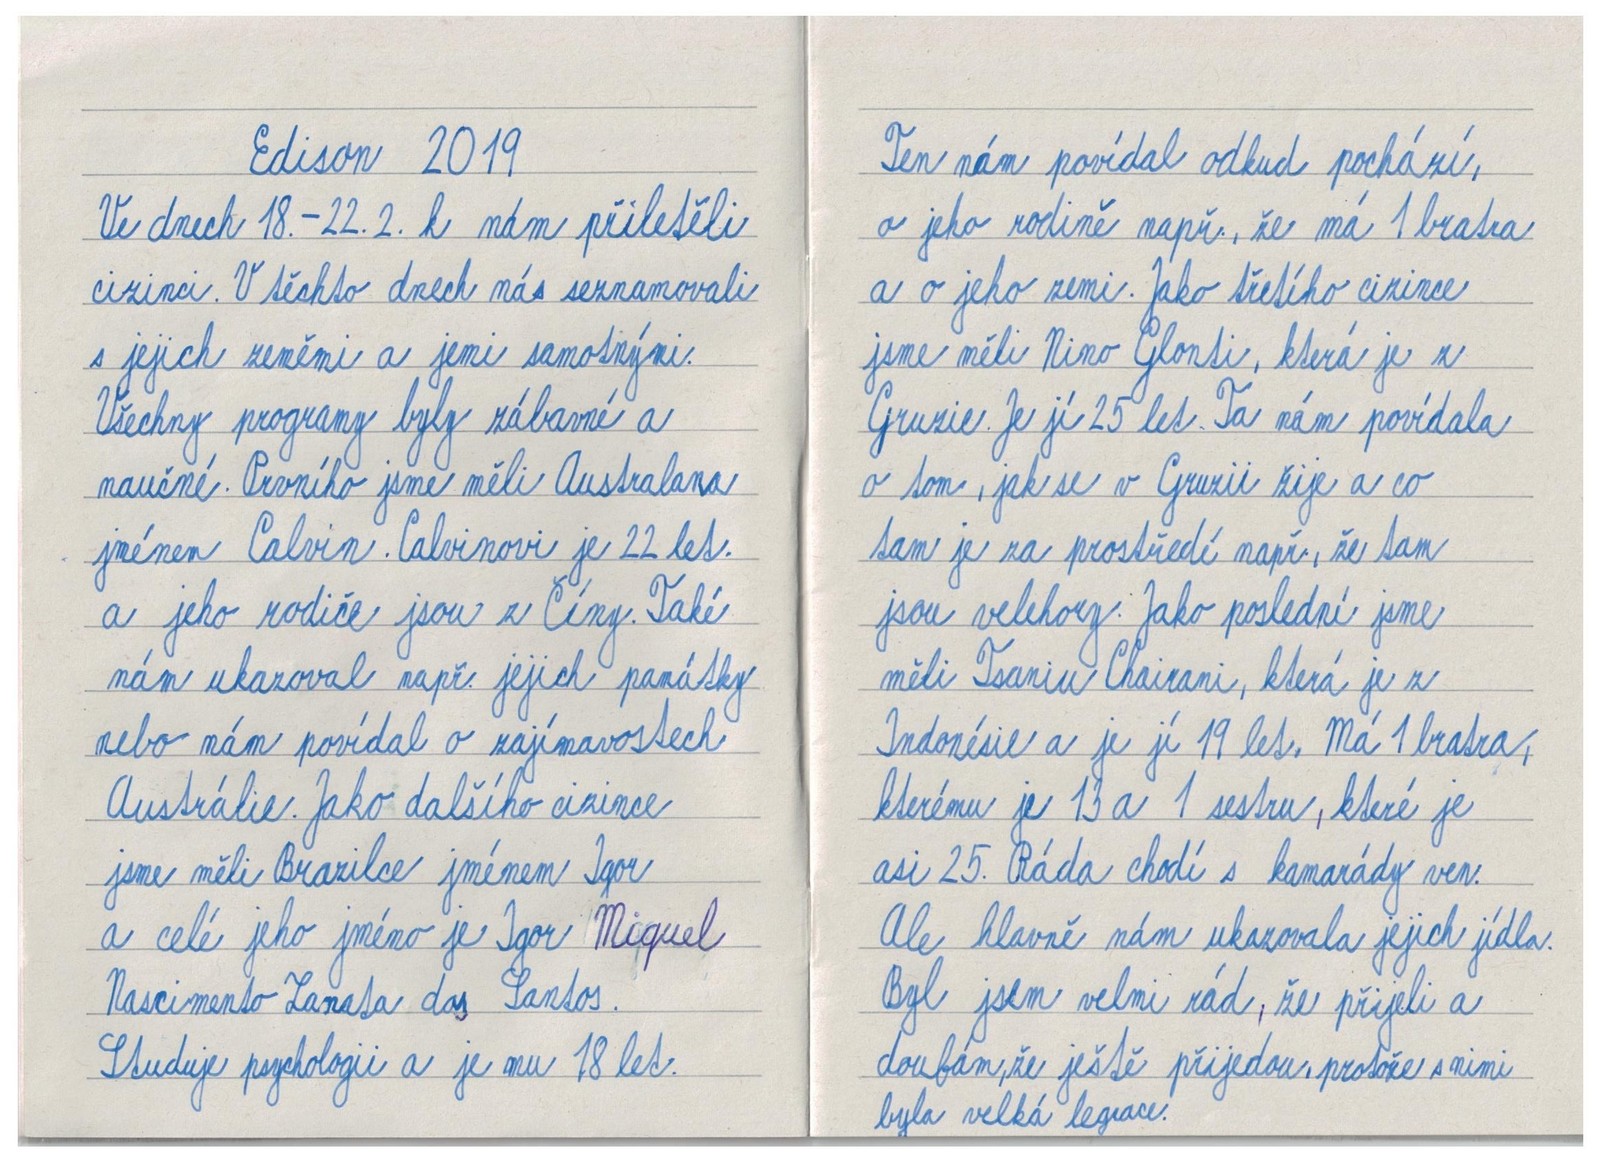 Edison 2019
Ve dnech 18.-22.2. k nám přiletěli
cizinci. V těchto dnech nás seznamovali
s jejich zeměmi a jemi samotnými.
Všechny programy byly zábavné a
naučné. Prvního jsme měli Australana
jménem Calvin. Calvinovi je 22 let.
a jeho rodiče jsou z Číny. Také
nám ukazoval např. jejich památky
nebo nám povídal o zajímavostech
Austrálie. Jako dalšího cizince
jsme měli Brazilce jménem Igor
a celé jeho jméno je Igor Miguel
Nascimento Zanata das Santos.
Studuje psychologii a je mu 18 let.
Ten nám povídal odkud pochází,
o jeho rodině např., že má 1 bratra
a o jeho zemi. Jako třetího cizince
jsme měli Nino Glonti, která je z
Gruzie. Je jí 25 let. Ta nám povídala
o tom, jak se v Gruzii žije a co
tam je za prostředí např., že tam
jsou velehory. Jako poslední jsme
měli Tsaniu Chairani, která je z
Indonésie a je jí 19 let. Má 1 bratra,
kterému je 13 a 1 sestru, které je
asi 25. Ráda chodí s kamarády ven.
Ale hlavně nám ukazovala jejich jídla.
Byl jsem velmi rád, že přijeli a
doufám, že ještě přijedou, protože s nimi
byla velká legrace.